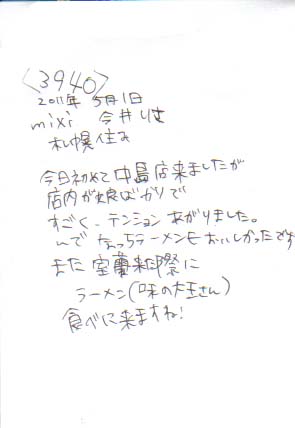 〈3940〉
2011年 5月1日
mixi 今井りさ
札幌住み
今日初めて中島店来ましたが
店内が娘ばかりで
すごく、テンションあがりました。
んで なっちラーメンもおいしかったです
また 室蘭来た際に
ラーメン(味の大王さん)
食べに来ますね!